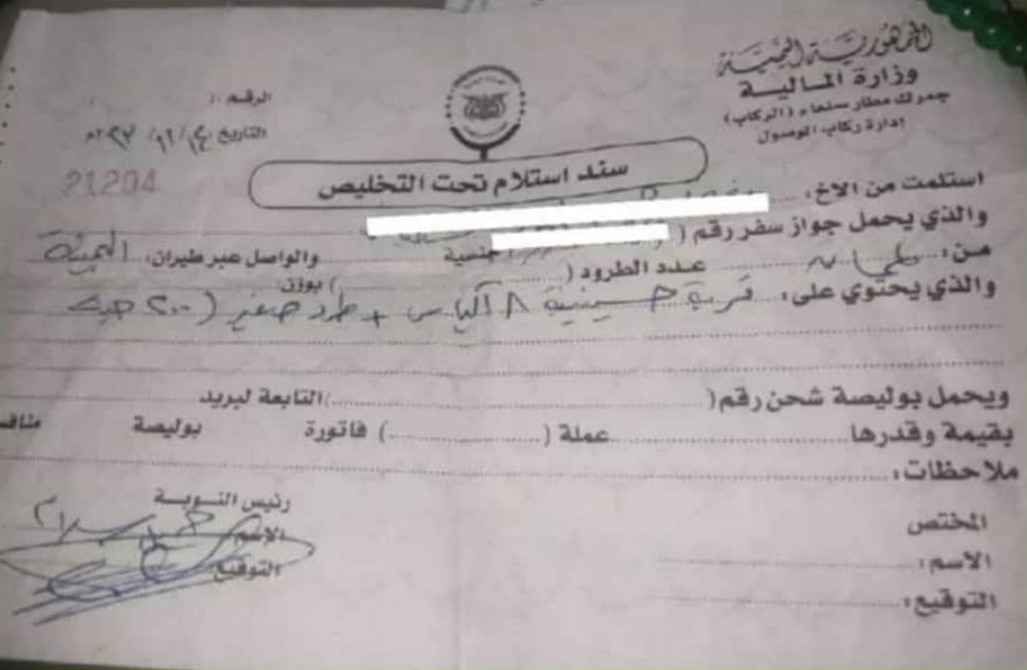 الجمهورية اليمنية
وزارة المالية
جمرك مطار صنعاء (الركاب)
إدارة ركاب الوصول
الرقم :
التاريخ ١٤ / ١٢ / ٢٠٢٢م
21204
سند استلام تحت التخليص
استلمت من الاخ :
والذي يحمل جواز سفر رقم ( ) جنسية والواصل عبر طيران : اليمنية
من : عمان عدد الطرود ( ) بوزن
والذي يحتوي على : قربة حسينية ٨ أكياس + طرد صغير ( ٢٠٠ حبة
ويحمل بوليصة شحن رقم ( ) التابعة لبريد
بقيمة وقدرها عملة ( ) فاتورة بوليصة منافس
ملاحظات :
المختص رئيس النوبة
الاسم : الاسم
التوقيع : التوقيع